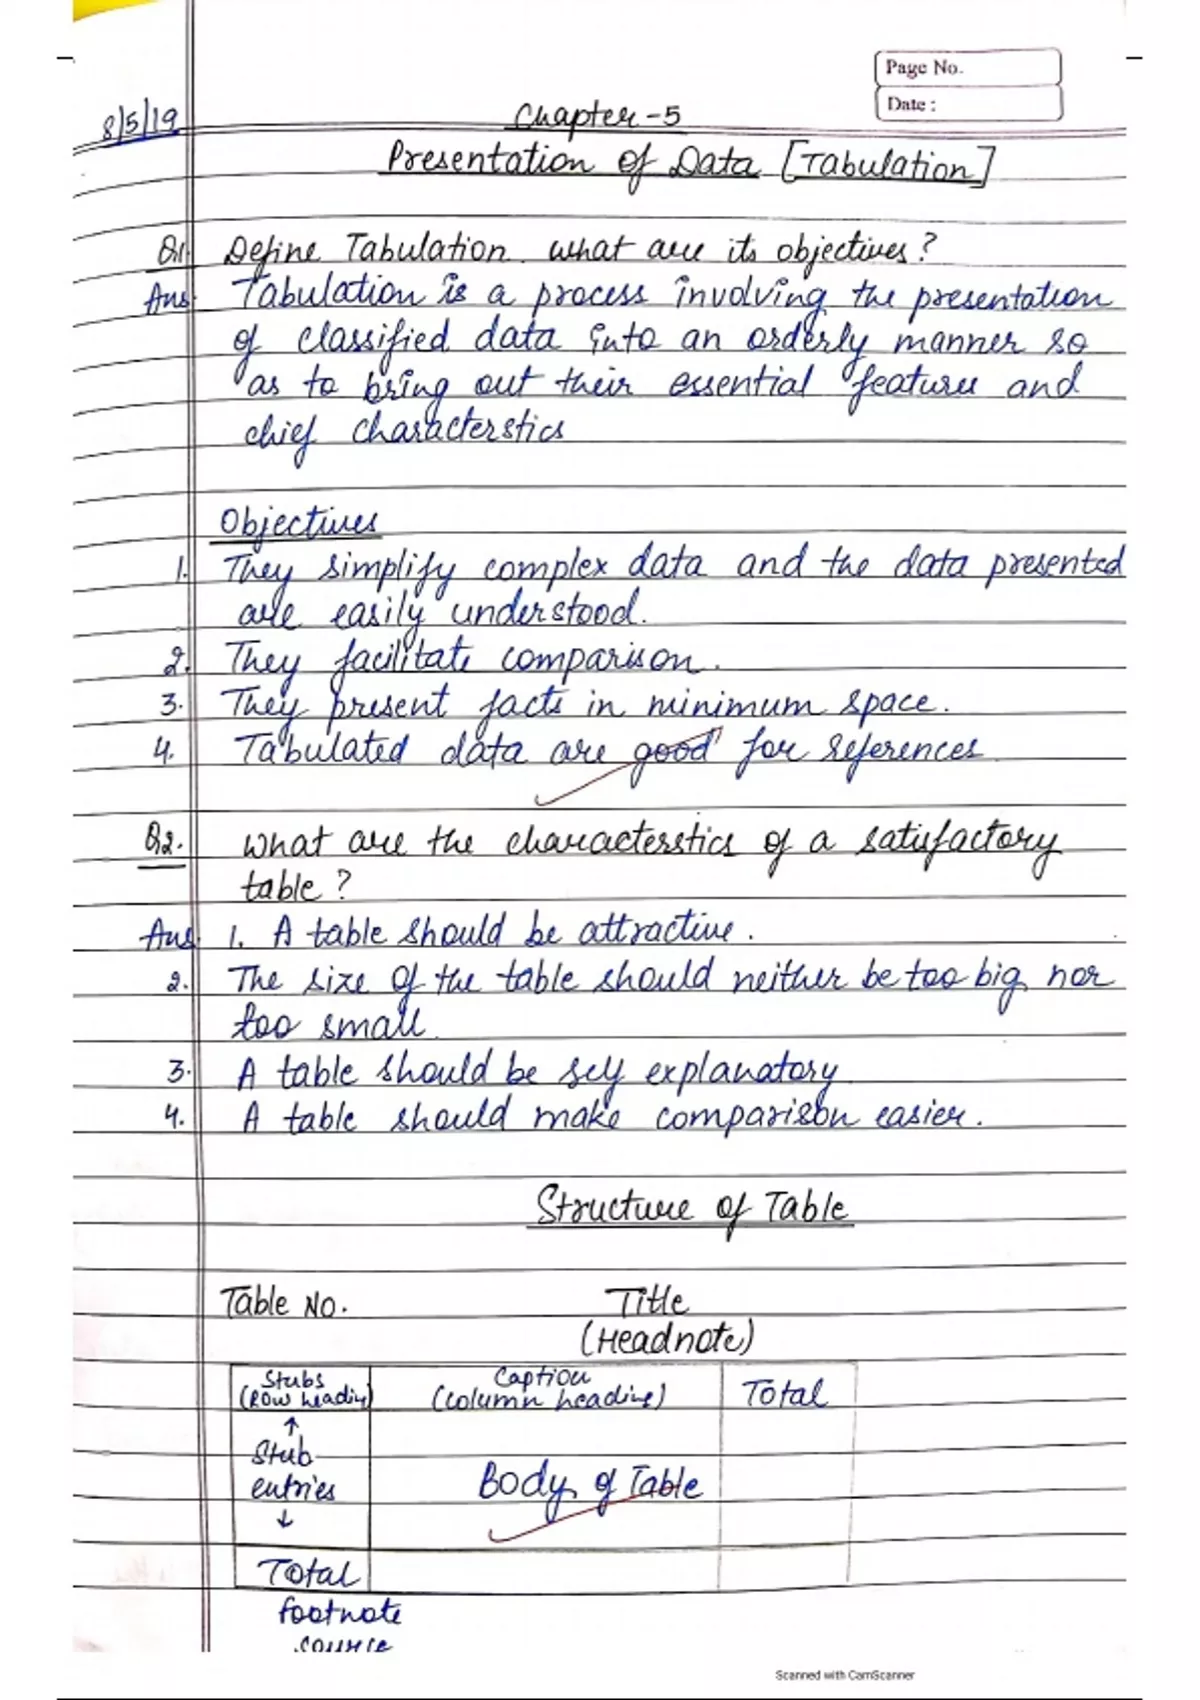 Page No.
Date :
8/5/19
Chapter-5
Presentation of Data [Tabulation]
Q1. Define Tabulation. what are its objectives?
Ans. Tabulation is a process involving the presentation
of classified data into an orderly manner so
as to bring out their essential features and
chief characterstics
Objectives
1. They simplify complex data and the data presented
are easily understood.
2. They facilitate comparison.
3. They present facts in minimum space.
4. Tabulated data are good for references.
Q2. What are the characterstics of a satisfactory
table?
Ans 1. A table should be attractive.
2. The size of the table should neither be too big nor
too small.
3. A table should be self explanatory
4. A table should make comparison easier.
Structure of Table
Table No. Title
(Headnote)
Stubs Caption Total
(Row heading) (Column heading)
↑
Stub
entries Body of Table
↓
Total
footnote
source
Scanned with CamScanner